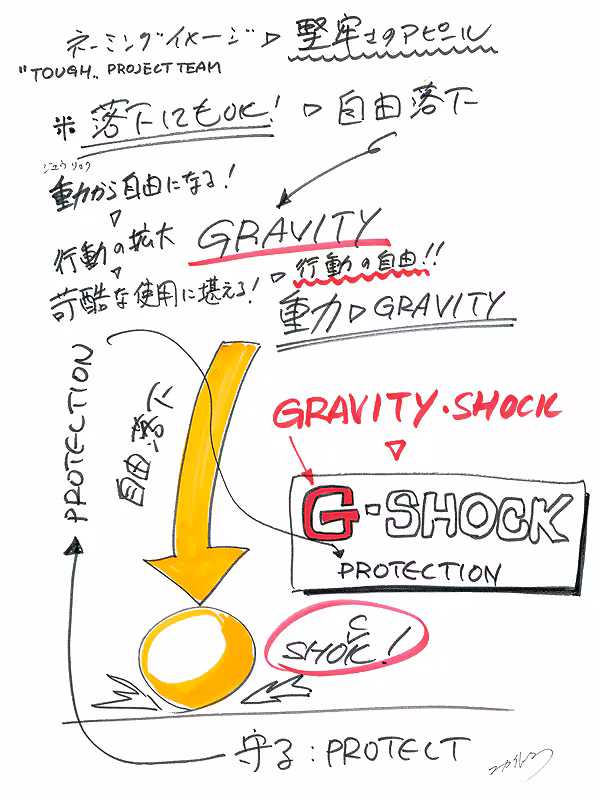 ネーミングイメージ▷堅牢さのアピール
"TOUGH" PROJECT TEAM
※落下にもOK! ▷自由落下
ジュウリョク
重力から自由になる!
▽
行動の拡大
▽
苛酷な使用に堪える! ▷行動の自由!!
GRAVITY
重力▷GRAVITY
PROTECTION
自由落下
GRAVITY・SHOCK
▽
G-SHOCK
PROTECTION
C
SHOK!
守る:PROTECT